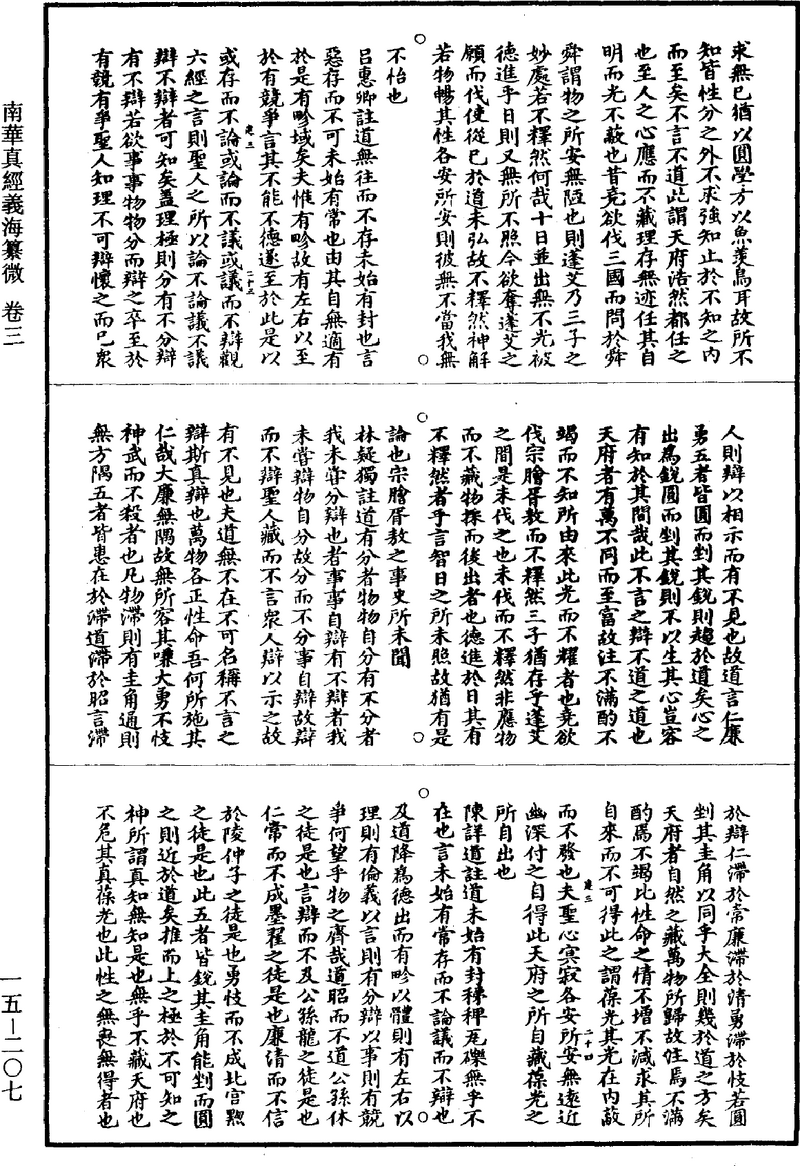 求無已猶以圓學方以魚羨鳥耳故所不
知皆性分之外不求強知止於不知之內
而至矣不言不道此謂天府浩然都任之
也至人之心應而不藏理存無迹任其自
明而光不蔽也昔堯欲伐三國而問於舜
舜謂物之所安無陋也則蓬艾乃三子之
妙處若不釋然何哉十日並出無不光被
德進乎日則又無所不照今欲奪蓬艾之
願而伐使從已於道未弘故不釋然神解
若物暢其性各安所安則彼無不當我無
不怡也
呂惠卿註道無往而不存未始有封也言
惡存而不可未始有常也由其自無適有
於是有畛域矣夫惟有畛故有左右以至
於有競爭言其不能不德遂至於此是以
或存而不論或論而不議或議而不辯觀
六經之言則聖人之所以論不論議不議
辯不辯者可知矣蓋理極則分有不分辯
有不辯若欲事事物物分而辯之卒至於
有競有爭聖人知理不可辯懷之而已衆
人則辯以相示而有不見也故道言仁廉
勇五者皆圓而剉其銳則趨於道矣心之
出爲銳圓而剉其銳則不以生其心豈容
有知於其間哉此不言之辯不道之道也
天府者有萬不同而至富故注不滿酌不
竭而不知所由來此光而不耀者也堯欲
伐宗膾胥敖而不釋然三子猶存乎蓬艾
之間是未伐之也未伐而不釋然非應物
而不藏物採而後出者也德進於日其有
不釋然者乎言智日之所未照故猶有是
論也宗膾胥敖之事史所未聞
林疑獨註道有分者物物自分有不分者
我未嘗分辯也者事事自辯有不辯者我
未嘗辯物自分故分而不分事自辯故辯
而不辯聖人藏而不言衆人辯以示之故
有不見也夫道無不在不可名稱不言之
辯斯真辯也萬物各正性命吾何所施其
仁哉大廉無隅故無所容其嗛大勇不忮
神武而不殺者也凡物滯則有圭角通則
無方隅五者皆患在於滯道滯於昭言滯
於辯仁滯於常廉滯於清勇滯於忮若圓
剉其圭角以同乎大全則幾於道之方矣
天府者自然之藏萬物所歸故注焉不滿
酌焉不竭比性命之情不增不減求其所
自來而不可得此之謂葆光其光在內蔽
而不發也夫聖心冥寂各安所安無遠近
幽深付之自得此天府之所自藏葆光之
所自出也
陳詳道註道未始有封稊稗瓦礫無乎不
在也言未始有常存而不論議而不辯也
及道降爲德出而有畛以體則有左右以
理則有倫義以言則有分辯以事則有競
爭何望乎物之齊哉道昭而不道公孫休
之徒是也言辯而不及公孫龍之徒是也
仁常而不成墨翟之徒是也廉清而不信
於陵仲子之徒是也勇忮而不成北宮黝
之徒是也此五者皆銳其圭角能剉而圓
之則近於道矣推而上之極於不可知之
神所謂真知無知是也無乎不藏天府也
不危其真葆光也此性之無喪無得者也
南華真經義海纂微 卷三
一五—二〇七